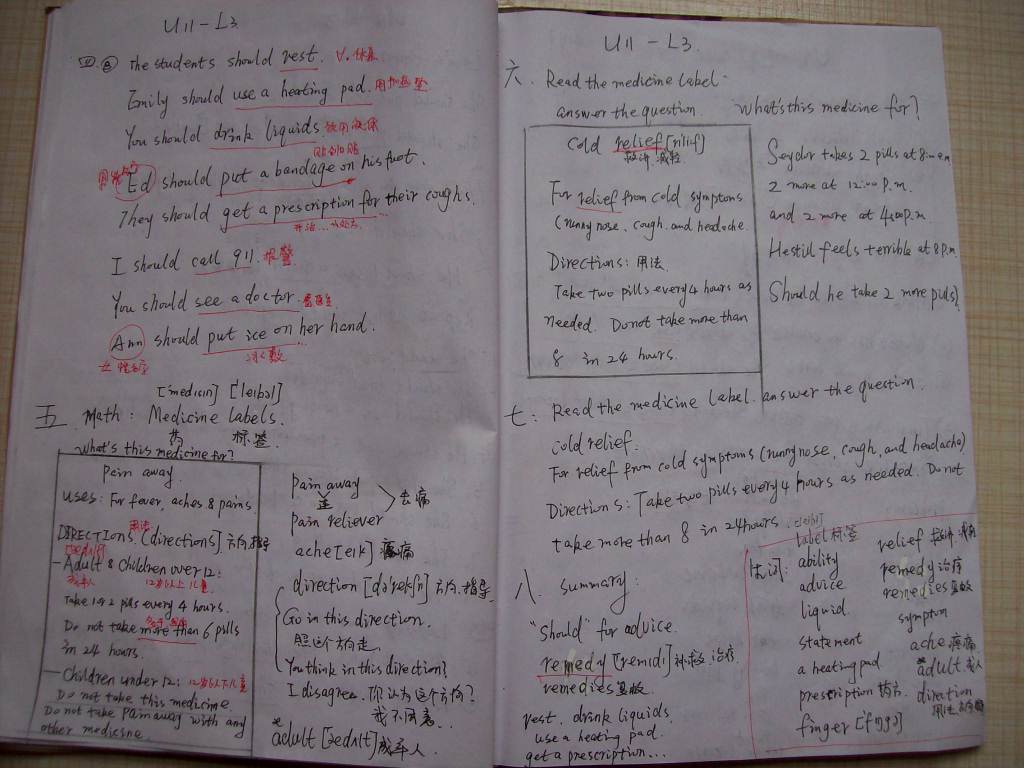 U11-L3
四 the students should rest. v. 休息
Emily should use a heating pad. 用加热垫
You should drink liquids 饮用液体
Ed should put a bandage on his foot.
They should get a prescription for their coughs.
I should call 911. 报警
You should see a doctor. 看医生
Ann should put ice on her hand.
冰敷
['medisin] ['leibəl]
五 Math: Medicine labels.
药 标签
What's this medicine for?
Pain away.
uses: For fever, aches & pains.
用法
DIRECTIONS. [directions] 方向.指导
[ædʌlt]
- Adult & Children over 12:
成年人 12岁以上儿童
Take 1 or 2 pills every 4 hours.
Do not take more than 6 pills
in 24 hours.
- Children under 12: 12岁以下儿童
Do not take this medicine
Do not take Pain away with any
other medicine.
Pain away
去痛
Pain reliever
ache [eik] 疼痛
direction [də'rekʃn] 方向.指导
Go in this direction.
照这个方向走
You think in this direction?
I disagree. 你认为这个方向?
我不同意...
*adult [ædʌlt] 成年人.
U11-L3.
六. Read the medicine label.
answer the question. What's this medicine for?
Cold relief [ri'lif]
减轻
For relief from cold symptoms
(runny nose, cough, and headache.
Directions: 用法
Take two pills every 4 hours as
needed. Do not take more than
8 in 24 hours.
Saydor takes 2 pills at 8:00 a.m
2 more at 12:00 p.m.
and 2 more at 4:00 p.m.
He still feels terrible at 8 p.m.
Should he take 2 more pills?
七: Read the medicine label. answer the question.
cold relief.
For relief from cold symptoms (runny nose, cough, and headache)
Directions: Take two pills every 4 hours as needed. Do not
take more than 8 in 24 hours.
八. summary:
"Should" for advice.
remedy [remidi] 补救 治疗
remedies 复数.
rest. drink liquids
use a heating pad.
get a prescription...
label 标签
生词: ability
advice
liquid
statement
a heating pad
prescription 药方
finger ['fiŋgə]
relief
remedy 治疗
remedies 复数
sympton
ache 疼痛
adult 成人
diretion